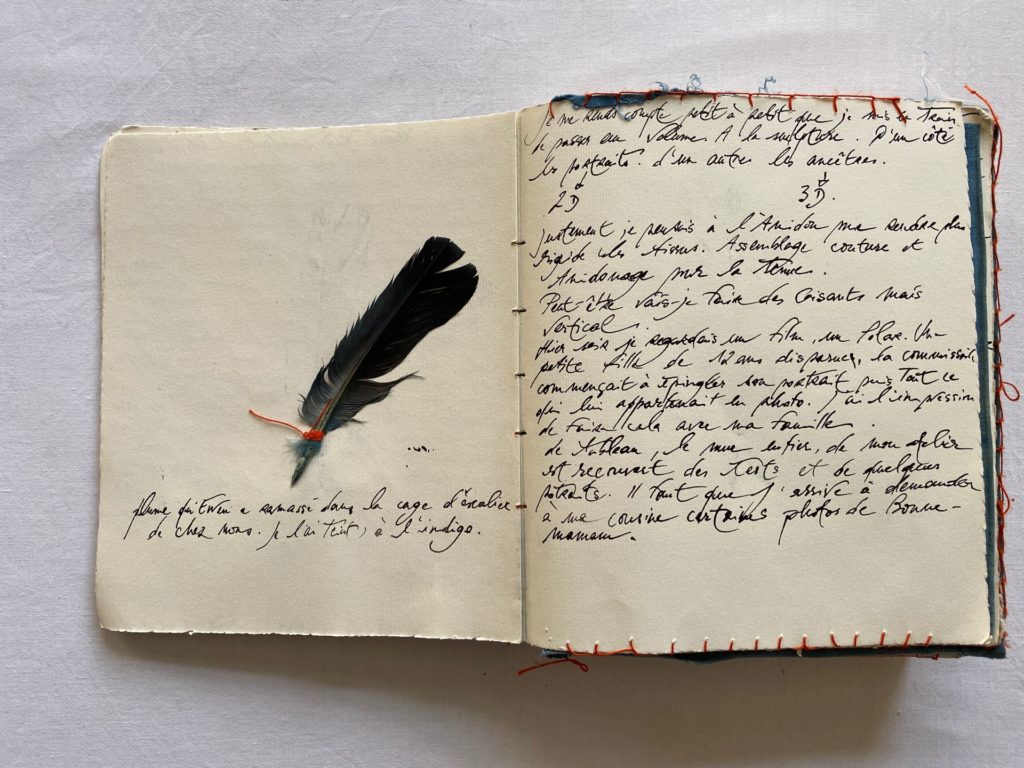 plume qu'Ewen a ramassé dans la cage d'escalier
de chez nous. Je l'ai teint, à l'indigo.
Je me rends compte petit à petit que je suis en train
de passer au volume. A la sculpture. D'un côté
les portraits. d'un autres les ancêtres.
2D 3D.
justement je pensais à l'Amidon pour rendre plus
rigide les tissus. Assemblage couture et
Amidonage pour la tenue.
Peut-être vais-je faire des Gisants mais
vertical.
Hier soir je regardais un film, un Polar. Une
petite fille de 12 ans disparue, la commissaire
commençait à épingler son portrait puis tout ce
qui lui appartenait en photo. J'ai l'impression
de faire cela avec ma famille.
de tableau, le mur entier, de mon atelier
est recouvert des tests et de quelques
potraits. Il faut que j'arrive à demander
à ma cousine certaines photos de Bonne-
maman.